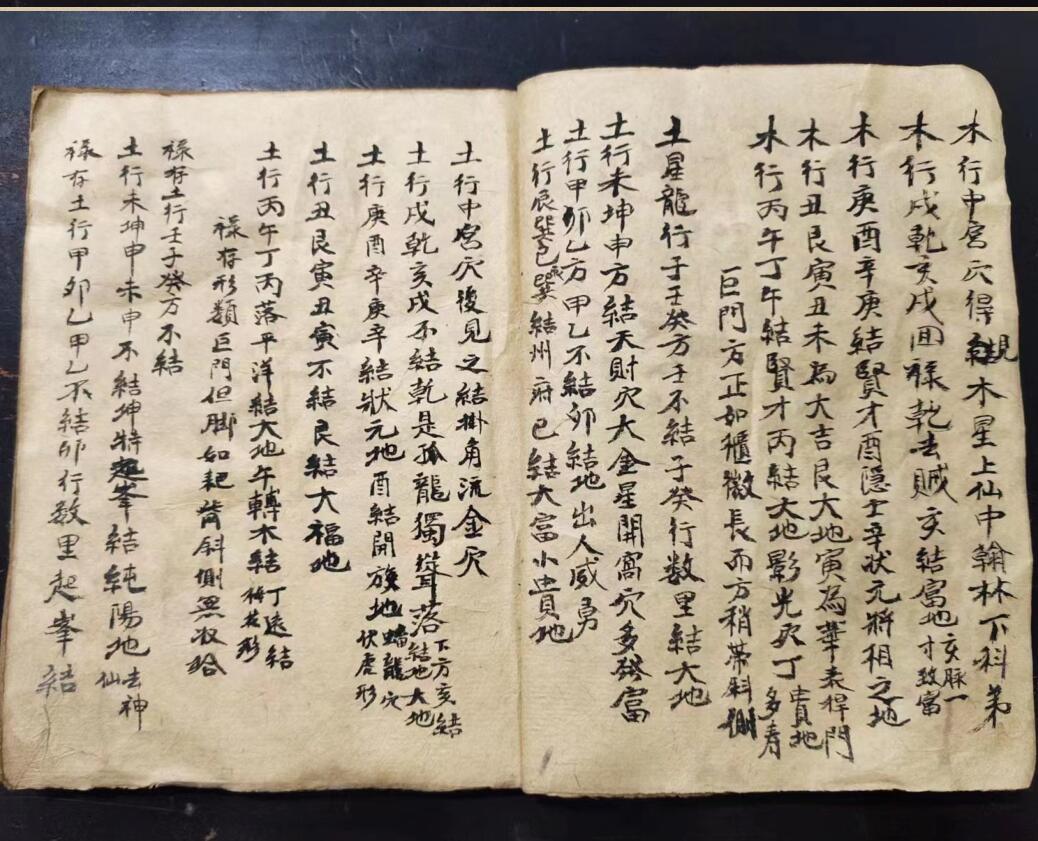 木行中宮穴得結現木星上仙中翰林下科第
木行戌乾亥戌回祿乾去賊亥結富地亥脉一寸致富
木行庚酉辛庚結賢才酉隱士辛狀元將相之地
木行丑艮寅丑未為大吉艮大地寅為華表桿門
木行丙午丁午結賢才丙結大地影光穴丁貴地多壽
巨門方正如櫃微長而方稍帶斜側
土星龍行子壬癸方壬不結子癸行数里結大地
土行未坤申方結天財穴大金星開窩穴多發富
土行甲卯乙方甲乙不結卯結地出人威勇
土行辰巽巳辰巽結州府巳結大富小貴地
土行中宮穴後見之結掛角流金穴
土行戌乾亥戌不結乾是孤龍獨聳落下方亥結結地大地
土行庚酉辛庚辛結狀元地酉結開族地蟠龍穴伏虎形
土行丑艮寅丑寅不結艮結大福地
土行丙午丁丙落平洋結大地午轉木結丁遠結梅花形
祿存形類巨門但脚如耙齒斜側無收拾
祿存土行壬子癸方不結
土行未坤申未申不結坤將起峯結純陽地去神仙
祿存土行甲卯乙甲乙不結卯行数里起峯結